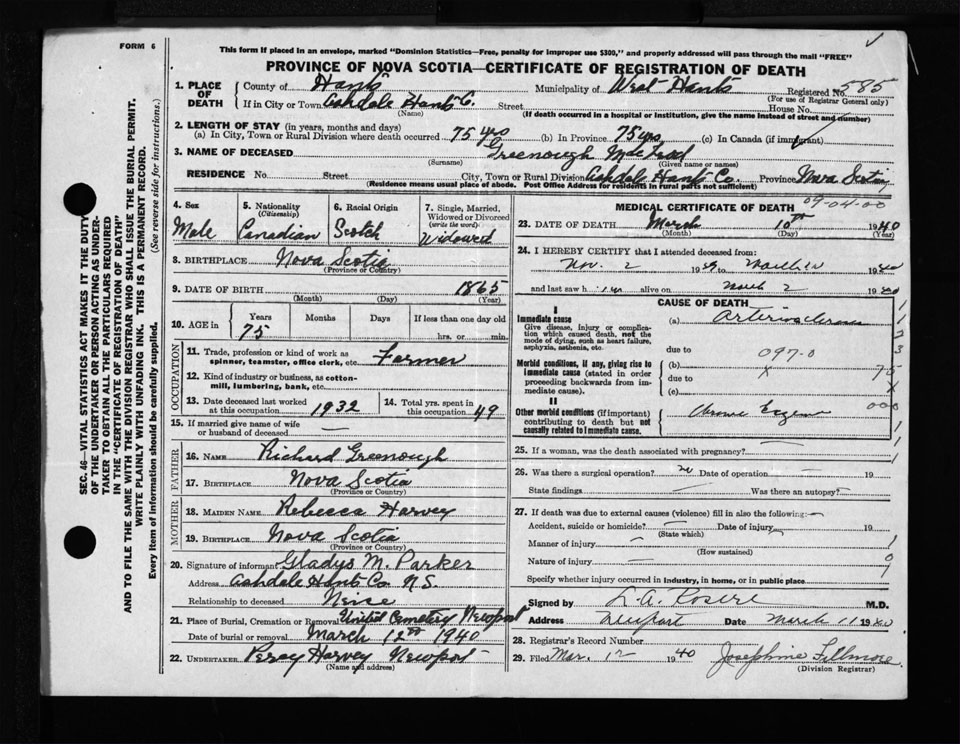 FORM 6
This form if placed in an envelope, marked "Dominion Statistics—Free, penalty for improper use $300," and properly addressed will pass through the mail "FREE"
PROVINCE OF NOVA SCOTIA—CERTIFICATE OF REGISTRATION OF DEATH
1. PLACE OF DEATH
County of Hants Municipality of West Hants Registered No. 585
(For use of Registrar General only)
If in City or Town Ashdale Hants C. Street House No.
(Name) (If death occurred in a hospital or Institution, give the name instead of street and number)
2. LENGTH OF STAY (in years, months and days)
(a) In City, Town or Rural Division where death occurred 75 yrs (b) In Province 75 yrs (c) In Canada (if immigrant)
3. NAME OF DECEASED Greenough
(Surname) (Given name or names)
RESIDENCE No. Street City, Town or Rural Division Ashdale Hants Co. Province Nova Scotia
(Residence means usual place of abode. Post Office Address for residents in rural parts not sufficient)
4. Sex
Male
5. Nationality
(Citizenship)
Canadian
6. Racial Origin
Scotch
7. Single, Married, Widowed or Divorced
(write the word)
Widowed
8. BIRTHPLACE Nova Scotia
(Province or Country)
9. DATE OF BIRTH 1865
(Month) (Day) (Year)
10. AGE in
Years Months Days If less than one day old
75 hrs. or min.
OCCUPATION
11. Trade, profession or kind of work as spinner, teamster, office clerk, etc. Farmer
12. Kind of industry or business, as cotton-mill, lumbering, bank, etc.
13. Date deceased last worked at this occupation 1932
14. Total yrs. spent in this occupation 49
15. If married give name of wife or husband of deceased —
FATHER
16. Name Richard Greenough
17. Birthplace Nova Scotia
(Province or Country)
MOTHER
18. Maiden Name Rebecca Harvey
19. Birthplace Nova Scotia
(Province or Country)
20. Signature of informant Gladys M. Parker
Address Ashdale Hants Co. N.S.
Relationship to deceased Neice
21. Place of Burial, Cremation or Removal United Cemetery Newport
Date of burial or removal March 12th 1940
22. Undertaker Percy Harvey Newport
(Name and address)
MEDICAL CERTIFICATE OF DEATH
09-04-00
23. DATE OF DEATH March 10th 1940
(Month) (Day) (Year)
24. I HEREBY CERTIFY that I attended deceased from:
Nov. 2 19 to 1940
and last saw h im alive on March 2 1940
CAUSE OF DEATH
I
Immediate cause
Give disease, injury or complication which caused death, not the mode of dying, such as heart failure, asphyxia, asthenia, etc.
(a) Arteriosclerosis
due to 097-0
Morbid conditions, if any, giving rise to immediate cause (stated in order proceeding backwards from immediate cause).
(b) X
due to
(c)
II
Other morbid conditions (if important) contributing to death but not causally related to immediate cause.
25. If a woman, was the death associated with pregnancy?
26. Was there a surgical operation? no Date of operation — 19
State findings — Was there an autopsy? —
27. If death was due to external causes (violence) fill in also the following:—
Accident, suicide or homicide? — Date of injury — 19
(State which)
Manner of injury —
(How sustained)
Nature of injury —
Specify whether injury occurred in industry, in home, or in public place
Signed by M.D.
Address Newport Date March 11 1940
28. Registrar's Record Number
29. Filed Mar. 12 1940 Josephine Fillmore
(Division Registrar)
SEC. 46—VITAL STATISTICS ACT MAKES IT THE DUTY
OF THE UNDERTAKER OR PERSON ACTING AS UNDERTAKER TO OBTAIN ALL THE PARTICULARS REQUIRED
IN THE "CERTIFICATE OF REGISTRATION OF DEATH"
AND TO FILE THE SAME WITH THE DIVISION REGISTRAR WHO SHALL ISSUE THE BURIAL PERMIT.
WRITE PLAINLY WITH UNFADING INK. THIS IS A PERMANENT RECORD.
Every item of information should be carefully supplied. (See reverse side for instructions.)